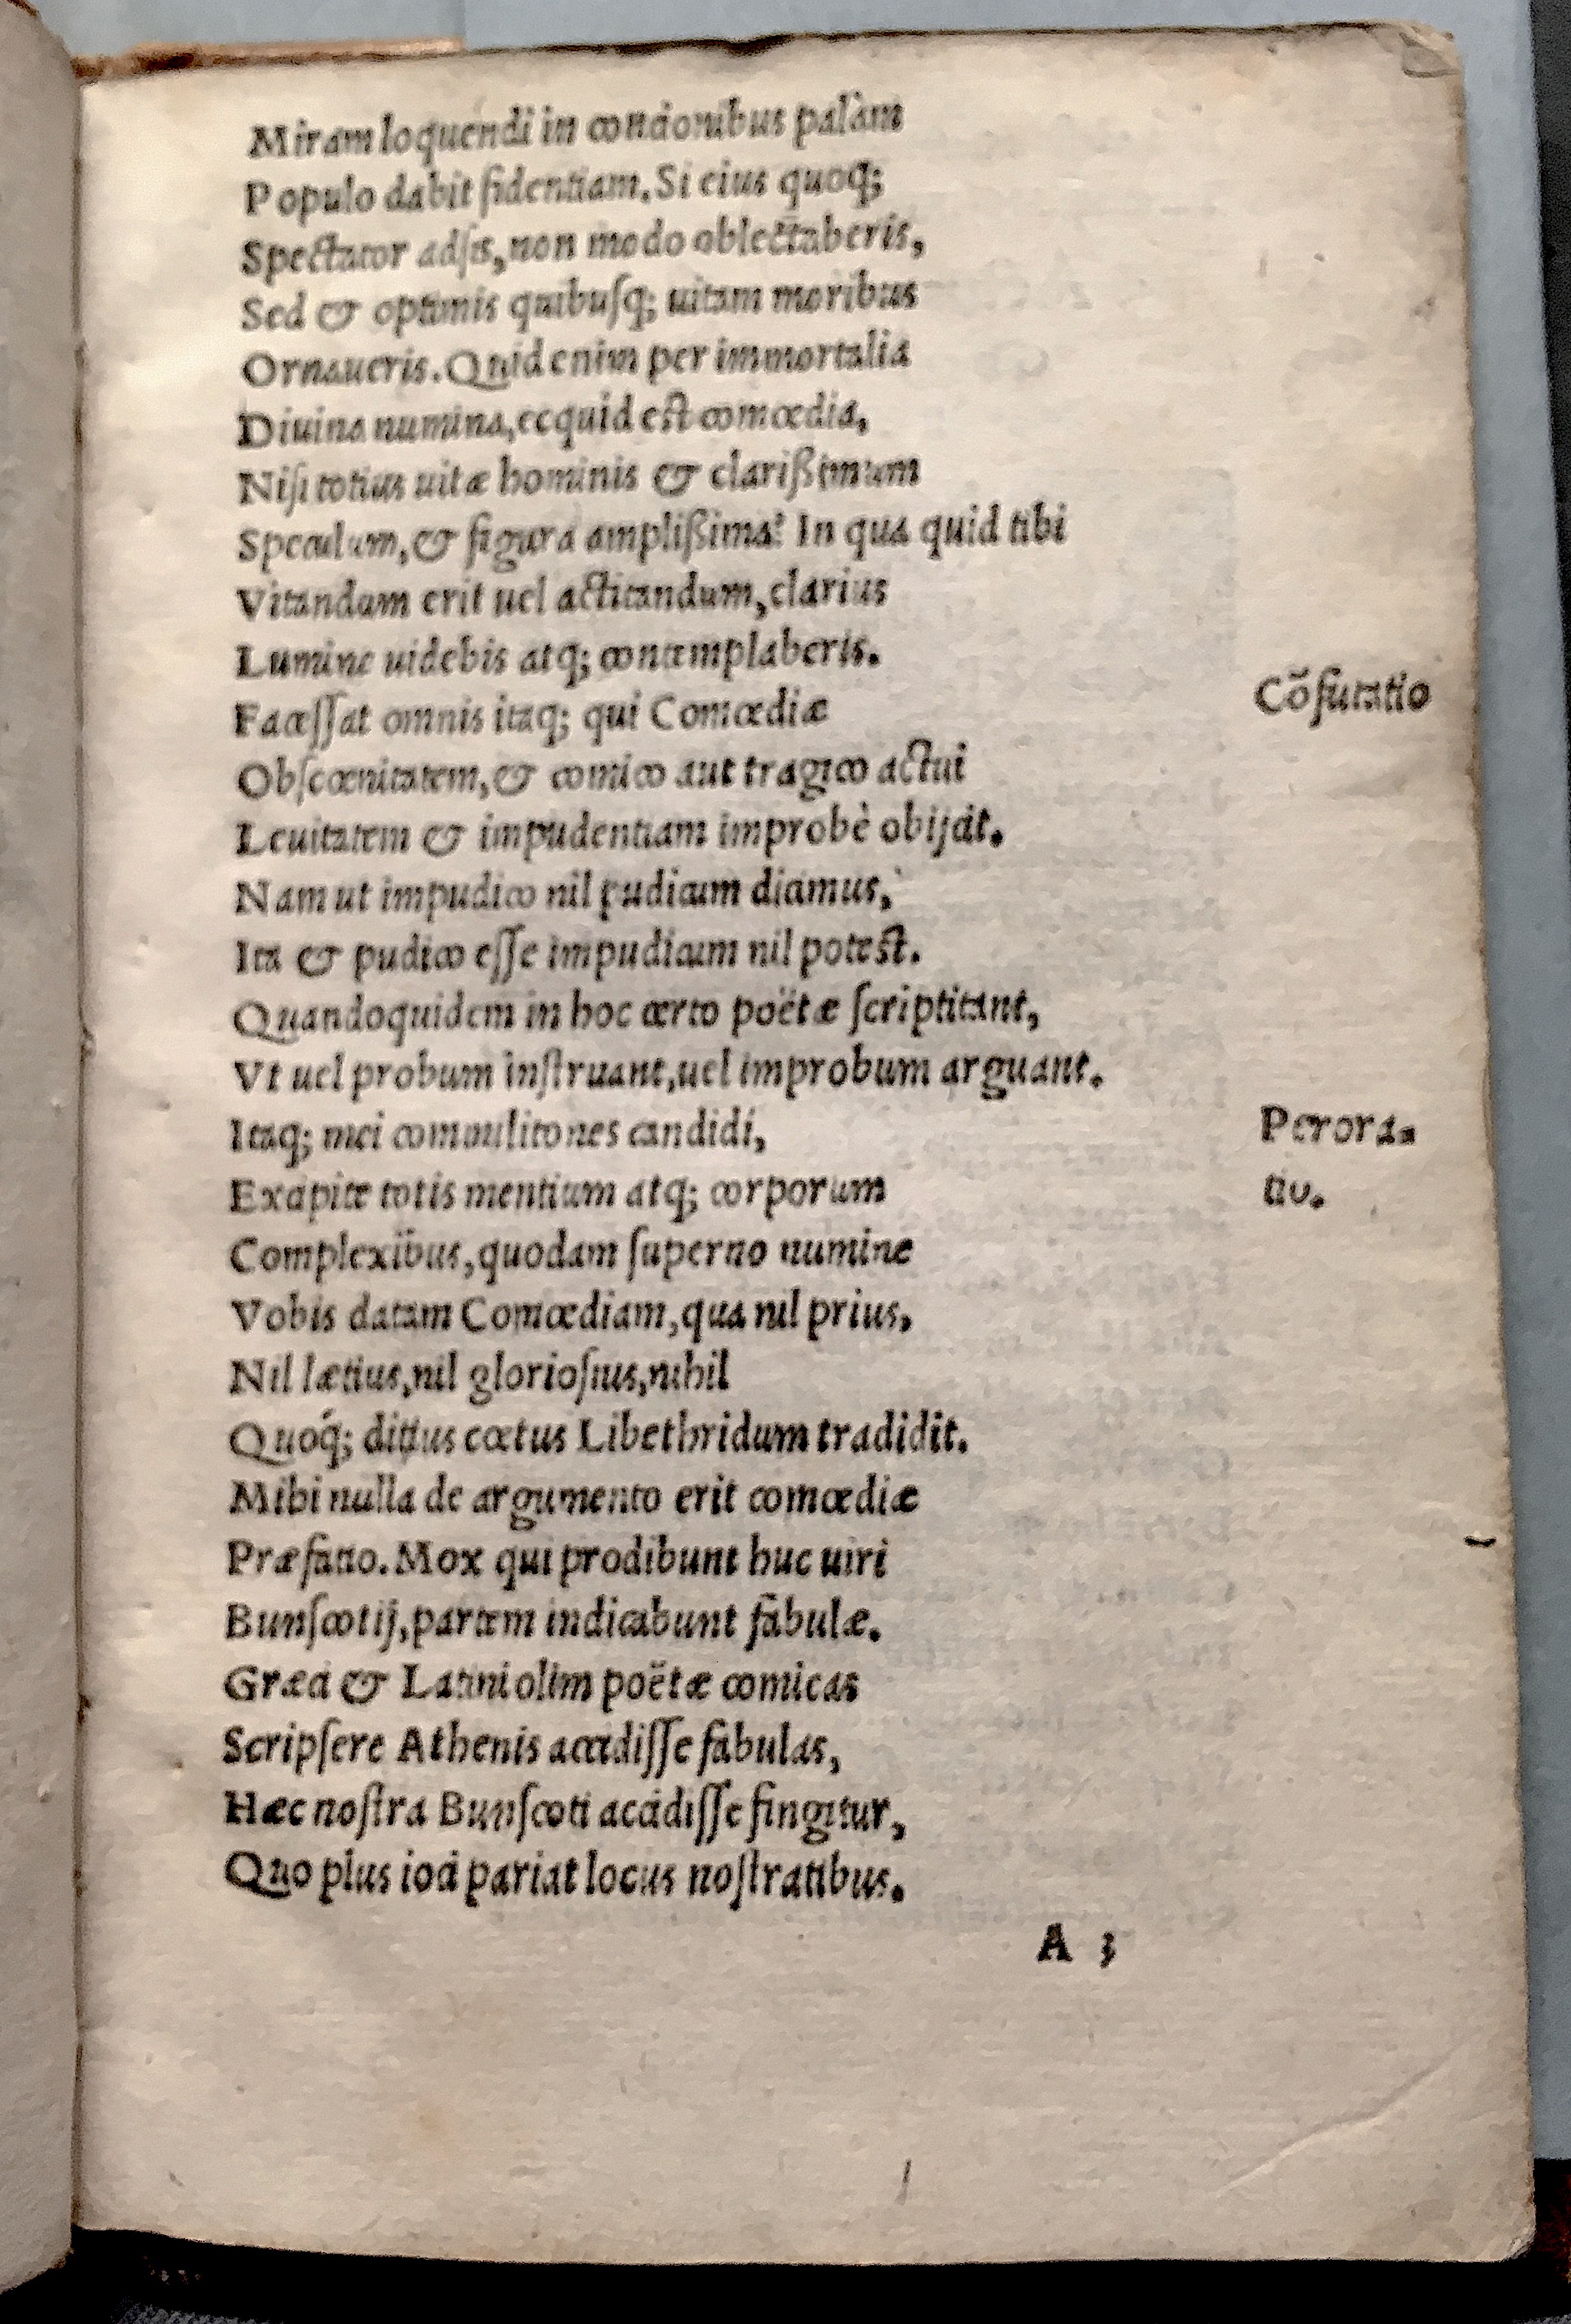 Miram loquendi in concionibus palàm
Populo dabit fidentiam. Si eius quoq;
Spectator adſis, non modo oblectaberis,
Sed & optimis quibuſq; uitam moribus
Ornaueris. Quid enim per immortalia
Diuina numina, ecquid est comœdia,
Niſi totius uitæ hominis & clarißimum
Speculum, & figura amplißima? In qua quid tibi
Vitandum erit uel actitandum, clarius
Lumine uidebis atq; contemplaberis.
Faceſſat omnis itaq; qui Comœdiæ
Cōfutatio
Obſcœnitatem, & comico aut tragico actui
Leuitatem & impudentiam improbè obijcit.
Nam ut impudico nil pudicum dicimus,
Ita & pudico eſſe impudicum nil potest.
Quandoquidem in hoc certo poëtæ ſcriptitant,
Vt uel probum inſtruant, uel improbum arguant.
Itaq; mei commilitones candidi,
Perora=
tio.
Excipite totis mentium atq; corporum
Complexibus, quodam ſuperno numine
Vobis datam Comœdiam, qua nil prius,
Nil lætius, nil glorioſius, nihil
Quóq; ditius cœtus Libethridum tradidit.
Mihi nulla de argumento erit comœdiæ
Præfatio. Mox qui prodibunt huc uiri
Bunſcotij, partem indicabunt fabulæ.
Græci & Latini olim poëtæ comicas
Scripſere Athenis accidiſſe fabulas,
Hæc noſtra Bunſcoti accidiſſe fingitur,
Quo plus ioci pariat locus noſtratibus.
A 3